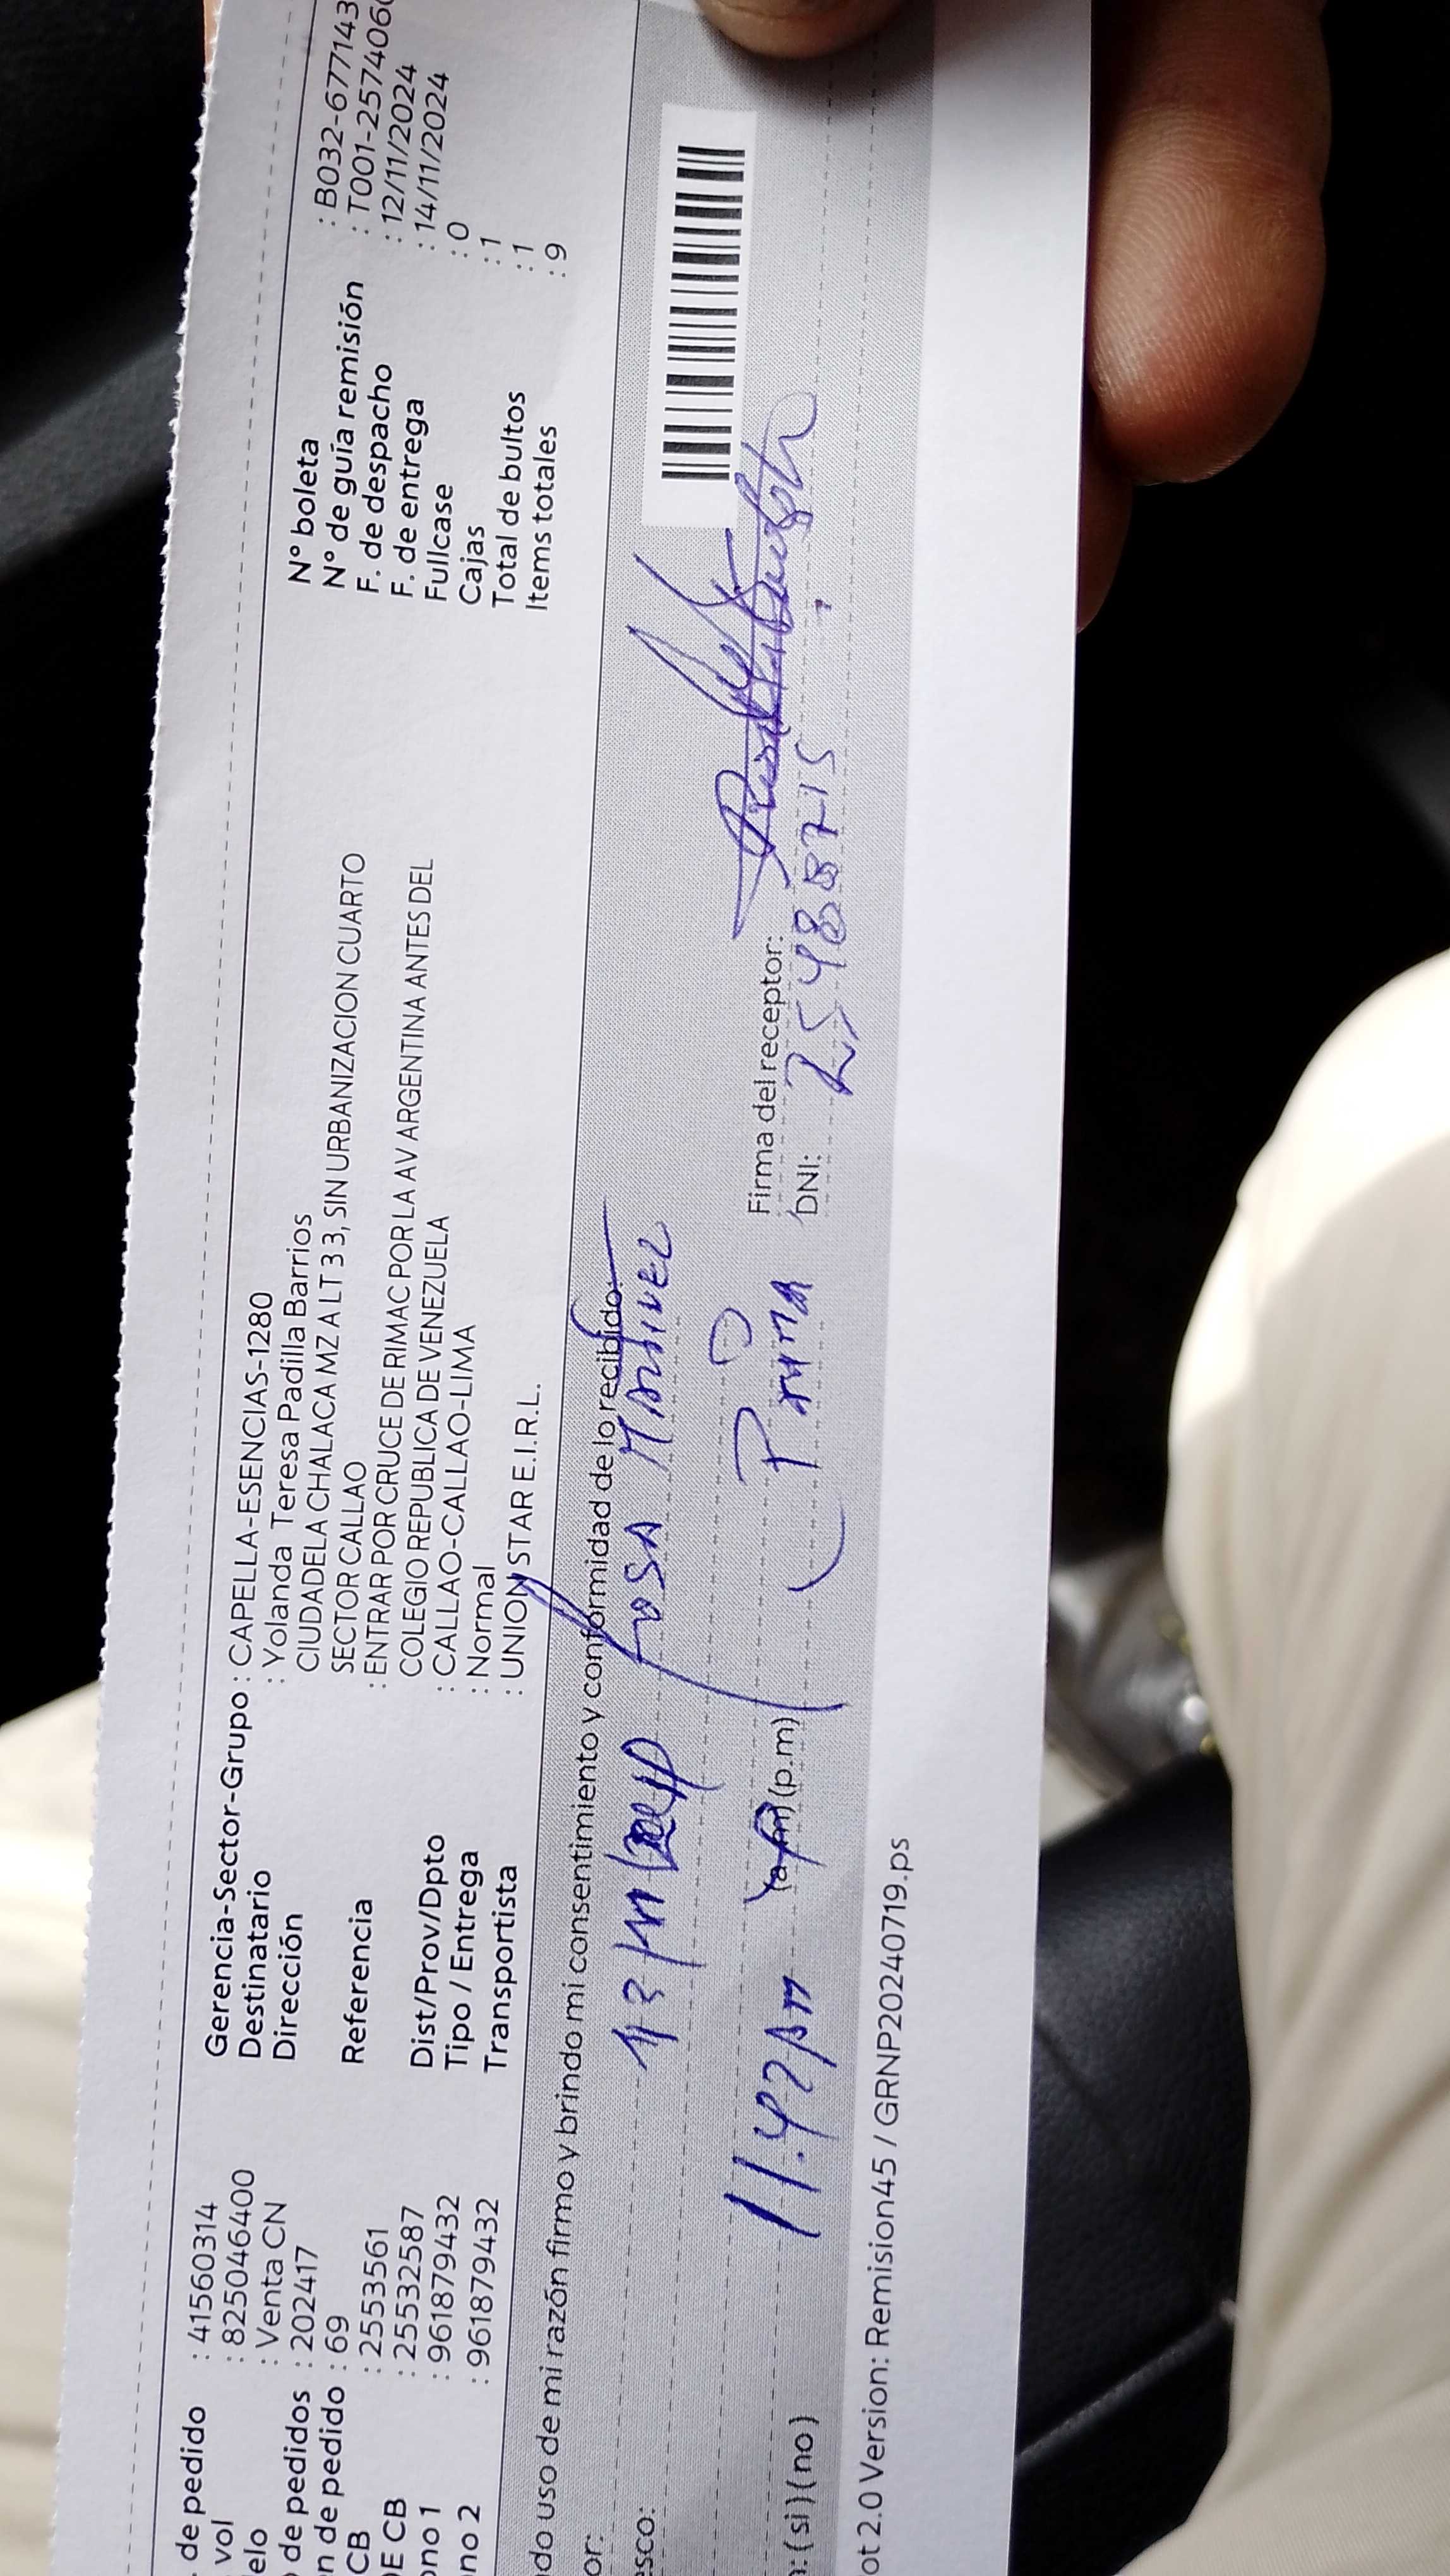 de pedido : 41560314
vol : 825046400
elo : Venta CN
de pedidos : 202417
n de pedido : 69
CB : 2553561
DE CB : 25532587
ono 1 : 961879432
no 2 : 961879432
Gerencia-Sector-Grupo : CAPELLA-ESENCIAS-1280
Destinatario : Yolanda Teresa Padilla Barrios
Dirección CIUDADELA CHALACA MZ A LT 3 3, SIN URBANIZACION CUARTO
SECTOR CALLAO
Referencia : ENTRAR POR CRUCE DE RIMAC POR LA AV ARGENTINA ANTES DEL
COLEGIO REPUBLICA DE VENEZUELA
Dist/Prov/Dpto : CALLAO-CALLAO-LIMA
Tipo / Entrega : Normal
Transportista : UNION STAR E.I.R.L.
N° boleta : B032-677143
N° de guía remisión : T001-2574060
F. de despacho : 12/11/2024
F. de entrega : 14/11/2024
Fullcase : 0
Cajas : 1
Total de bultos : 1
Items totales : 9
do uso de mi razón firmo y brindo mi consentimiento y conformidad de lo recibido.
or: Rosa
esco:
Firma del receptor:
11:42 Am (a.m) (p.m) ( Prima DNI: 25488715
: (si) (no)
ot 2.0 Version: Remision45 / GRNP20240719.ps